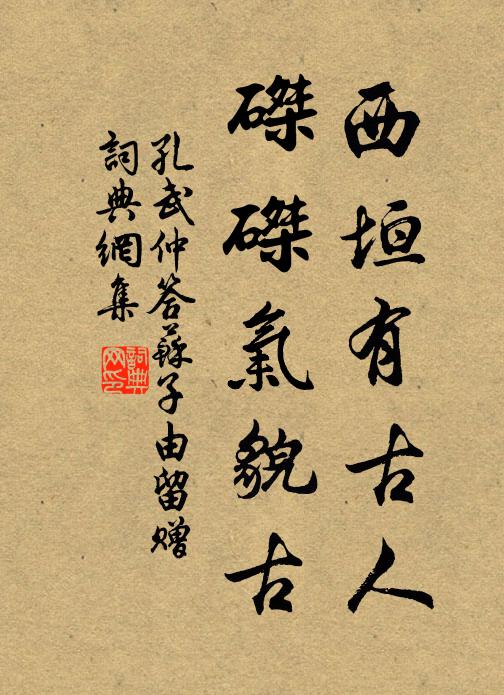 西垣有古人
磔磔氣貌古
孔武仲答蘇子由留贈
詞典網集
詞典網印